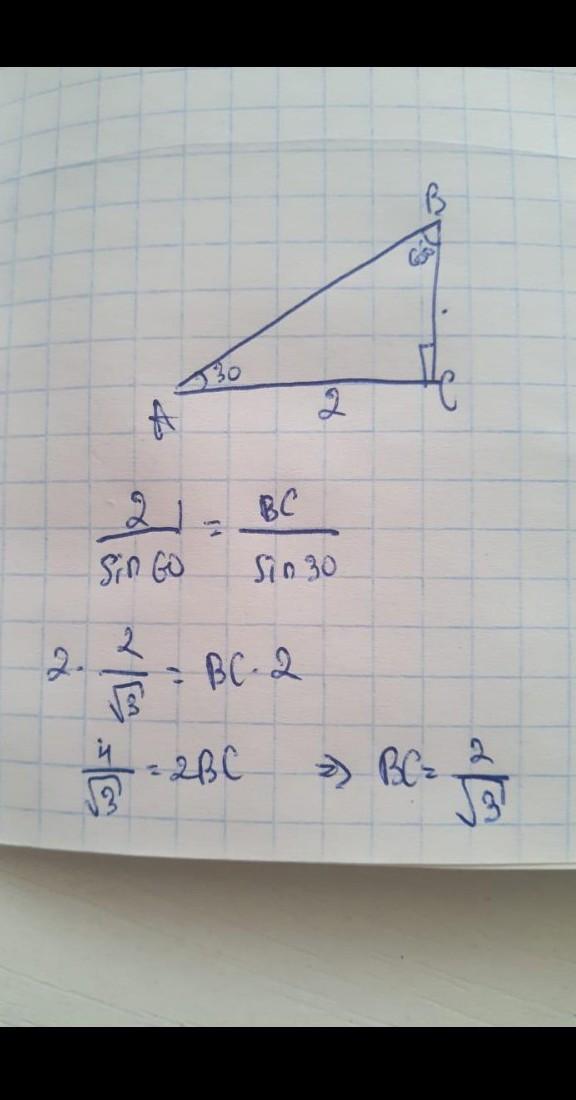 B
60
30
A
2
C
2/sin 60 = BC/sin 30
2 · 2/√3 = BC · 2
4/√3 = 2BC ⇒ BC = 2/√3